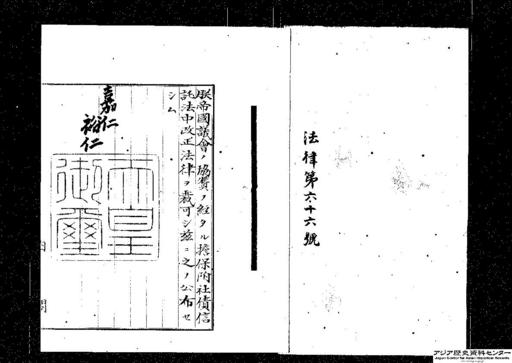 法律第六十六號
朕帝國議會ノ協賛ヲ經タル擔保附社債信
託法中改正法律ヲ裁可シ玆ニ之ヲ公布セ
シム
嘉仁
裕仁
天皇
御璽
内閣
アジア歴史資料センター
Japan Center for Asian Historical Records